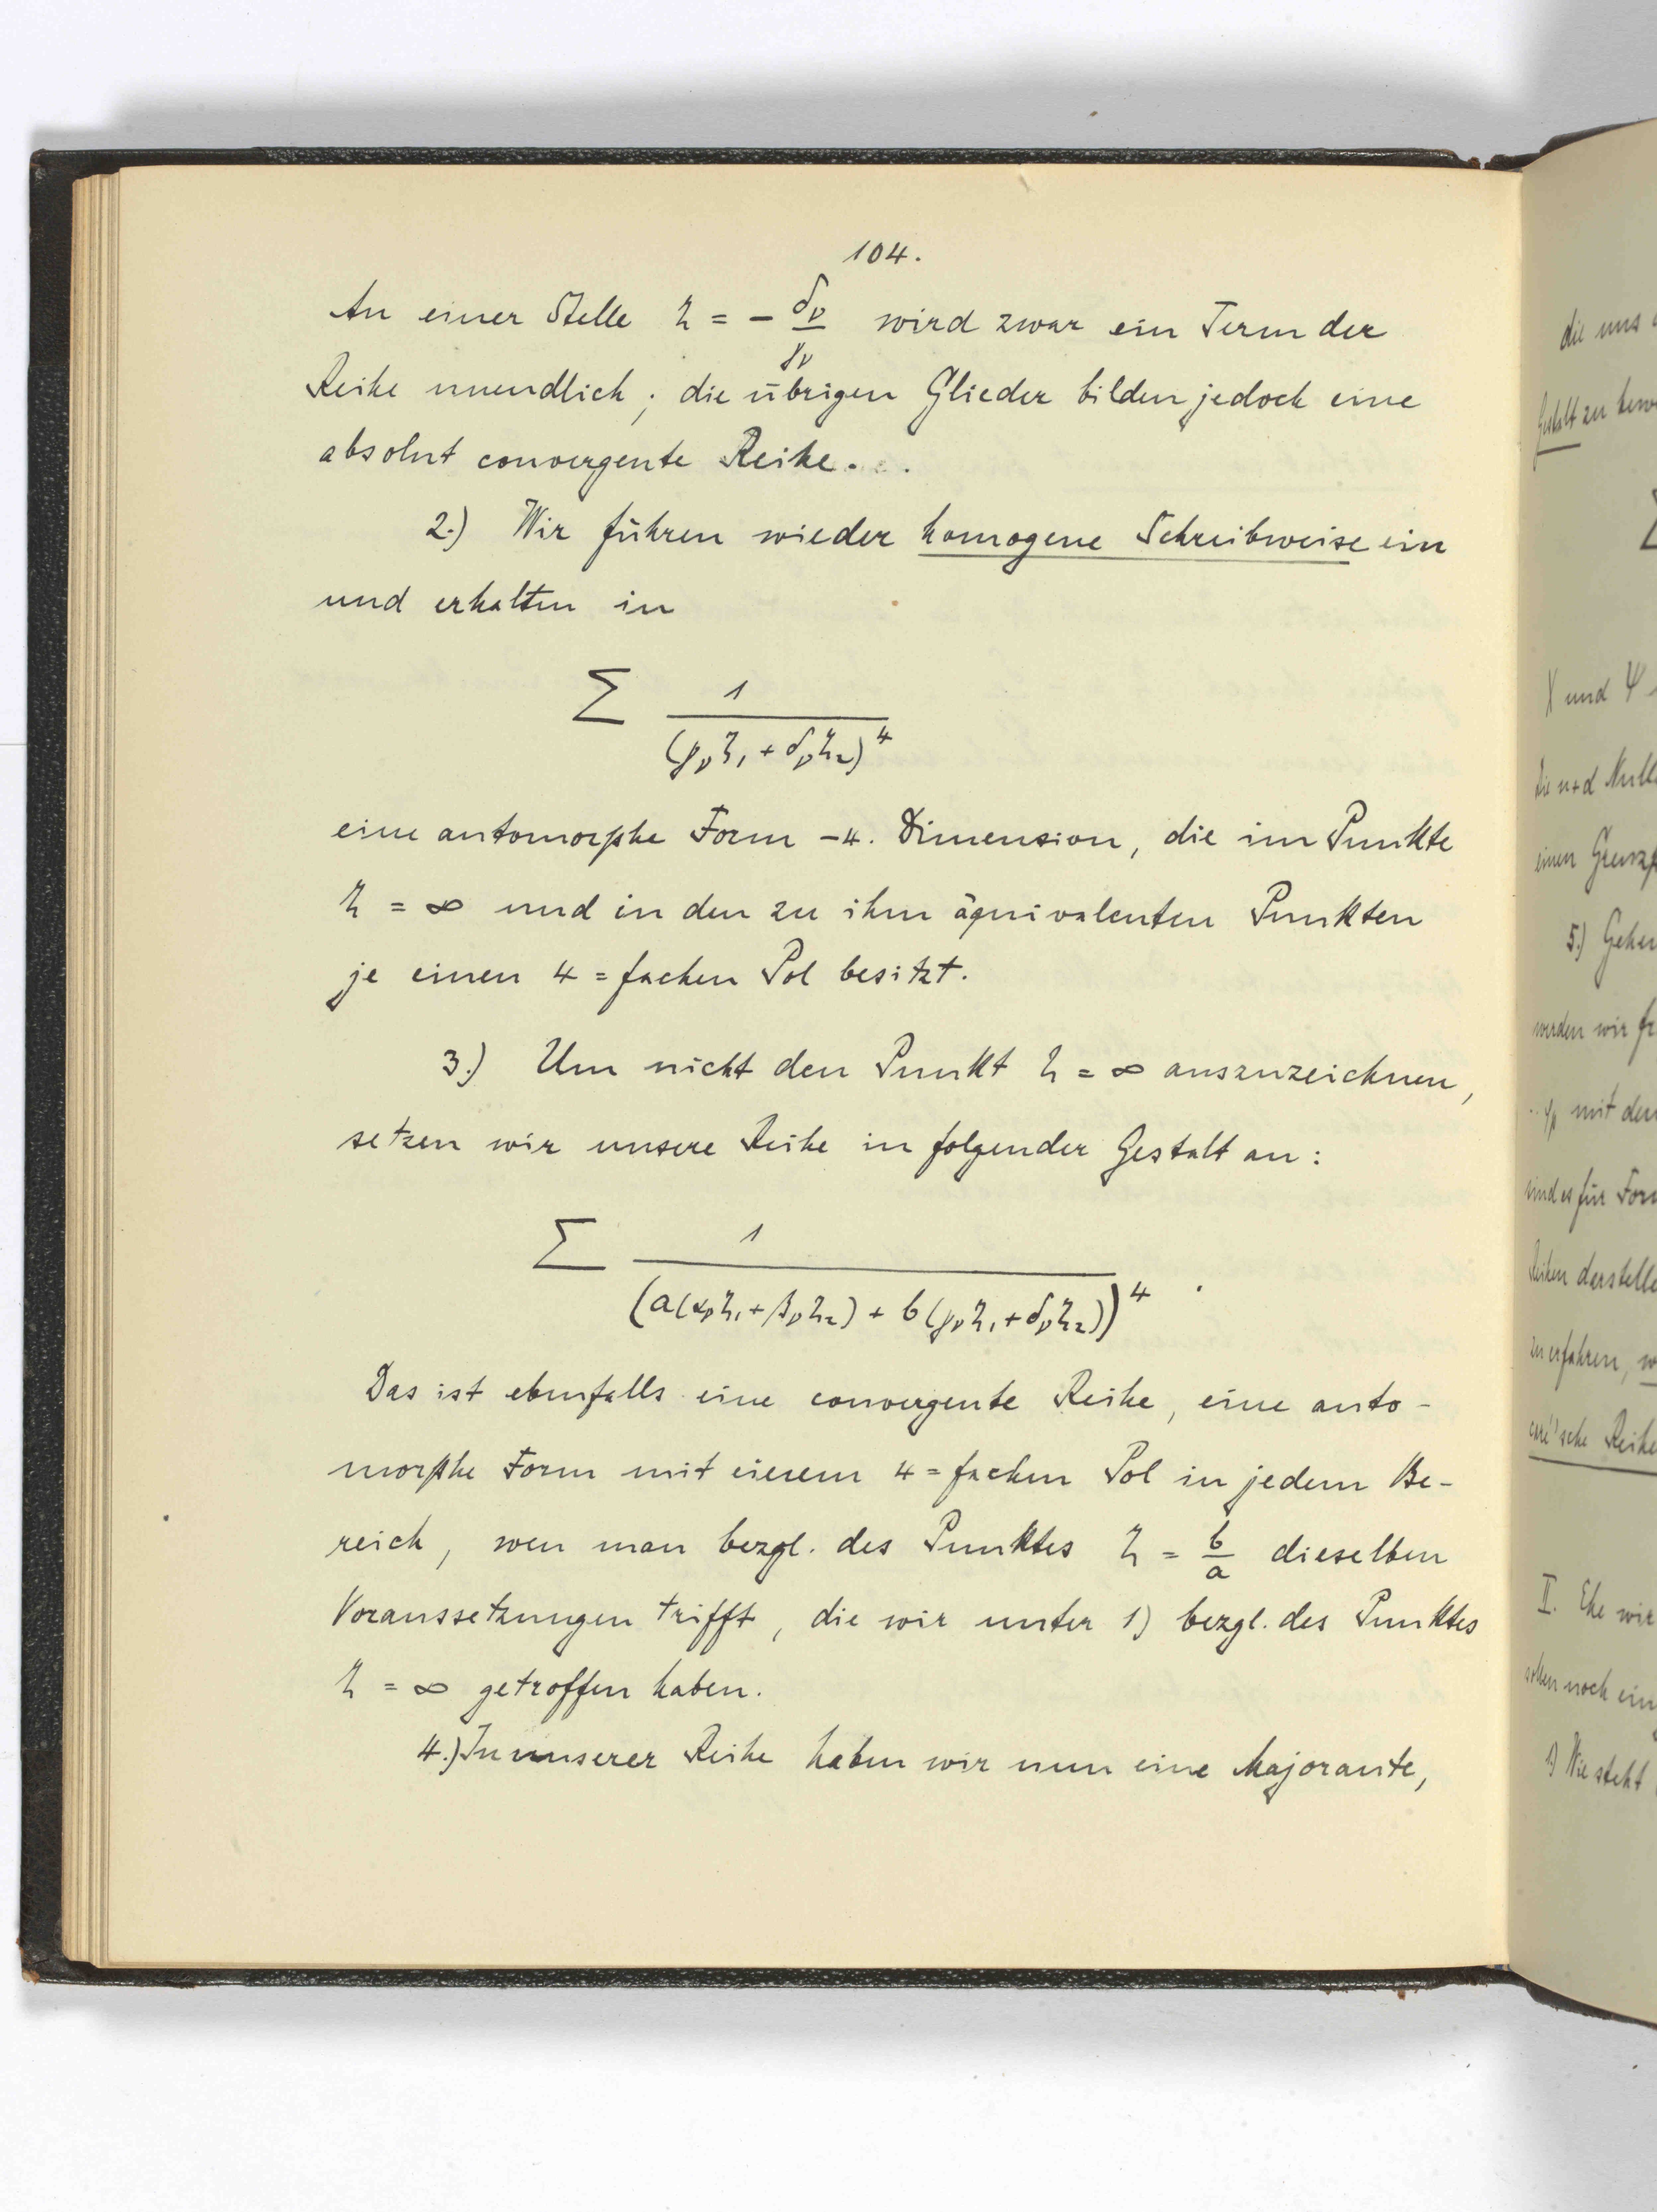 104.
An einer Stelle ζ = - δν/γν wird zwar ein Term der
Reihe unendlich; die übrigen Glieder bilden jedoch eine
absolut convergente Reihe.
2.) Wir führen wieder homogene Schreibweise ein
und erhalten in
Σ 1/(γν ζ1 + δν ζ2)^4
eine automorphe Form -4. Dimension, die im Punkte
ζ = ∞ und in den zu ihm äquivalenten Punkten
je einen 4=fachen Pol besitzt.
3.) Um nicht den Punkt ζ = ∞ auszuzeichnen,
setzen wir unsere Reihe in folgender Gestalt an:
Σ 1/(a(αν ζ1 + βν ζ2) + b(γν ζ1 + δν ζ2))^4 .
Das ist ebenfalls eine convergente Reihe, eine auto-
morphe Form mit einem 4=fachen Pol in jedem Be-
reich, wen man bezgl. des Punktes ζ = b/a dieselben
Voraussetzungen trifft, die wir unter 1) bezgl. des Punktes
ζ = ∞ getroffen haben.
4.) In unserer Reihe haben wir nun eine Majorante,
die uns
Gestalt zu
X und Ψ
die n+d
einen
5.) Gehen
werden wir
mit den
sind es für
Reihen
zu erfahren,
sche Reihe
II. Ehe wir
noch ein
1) Wie steht